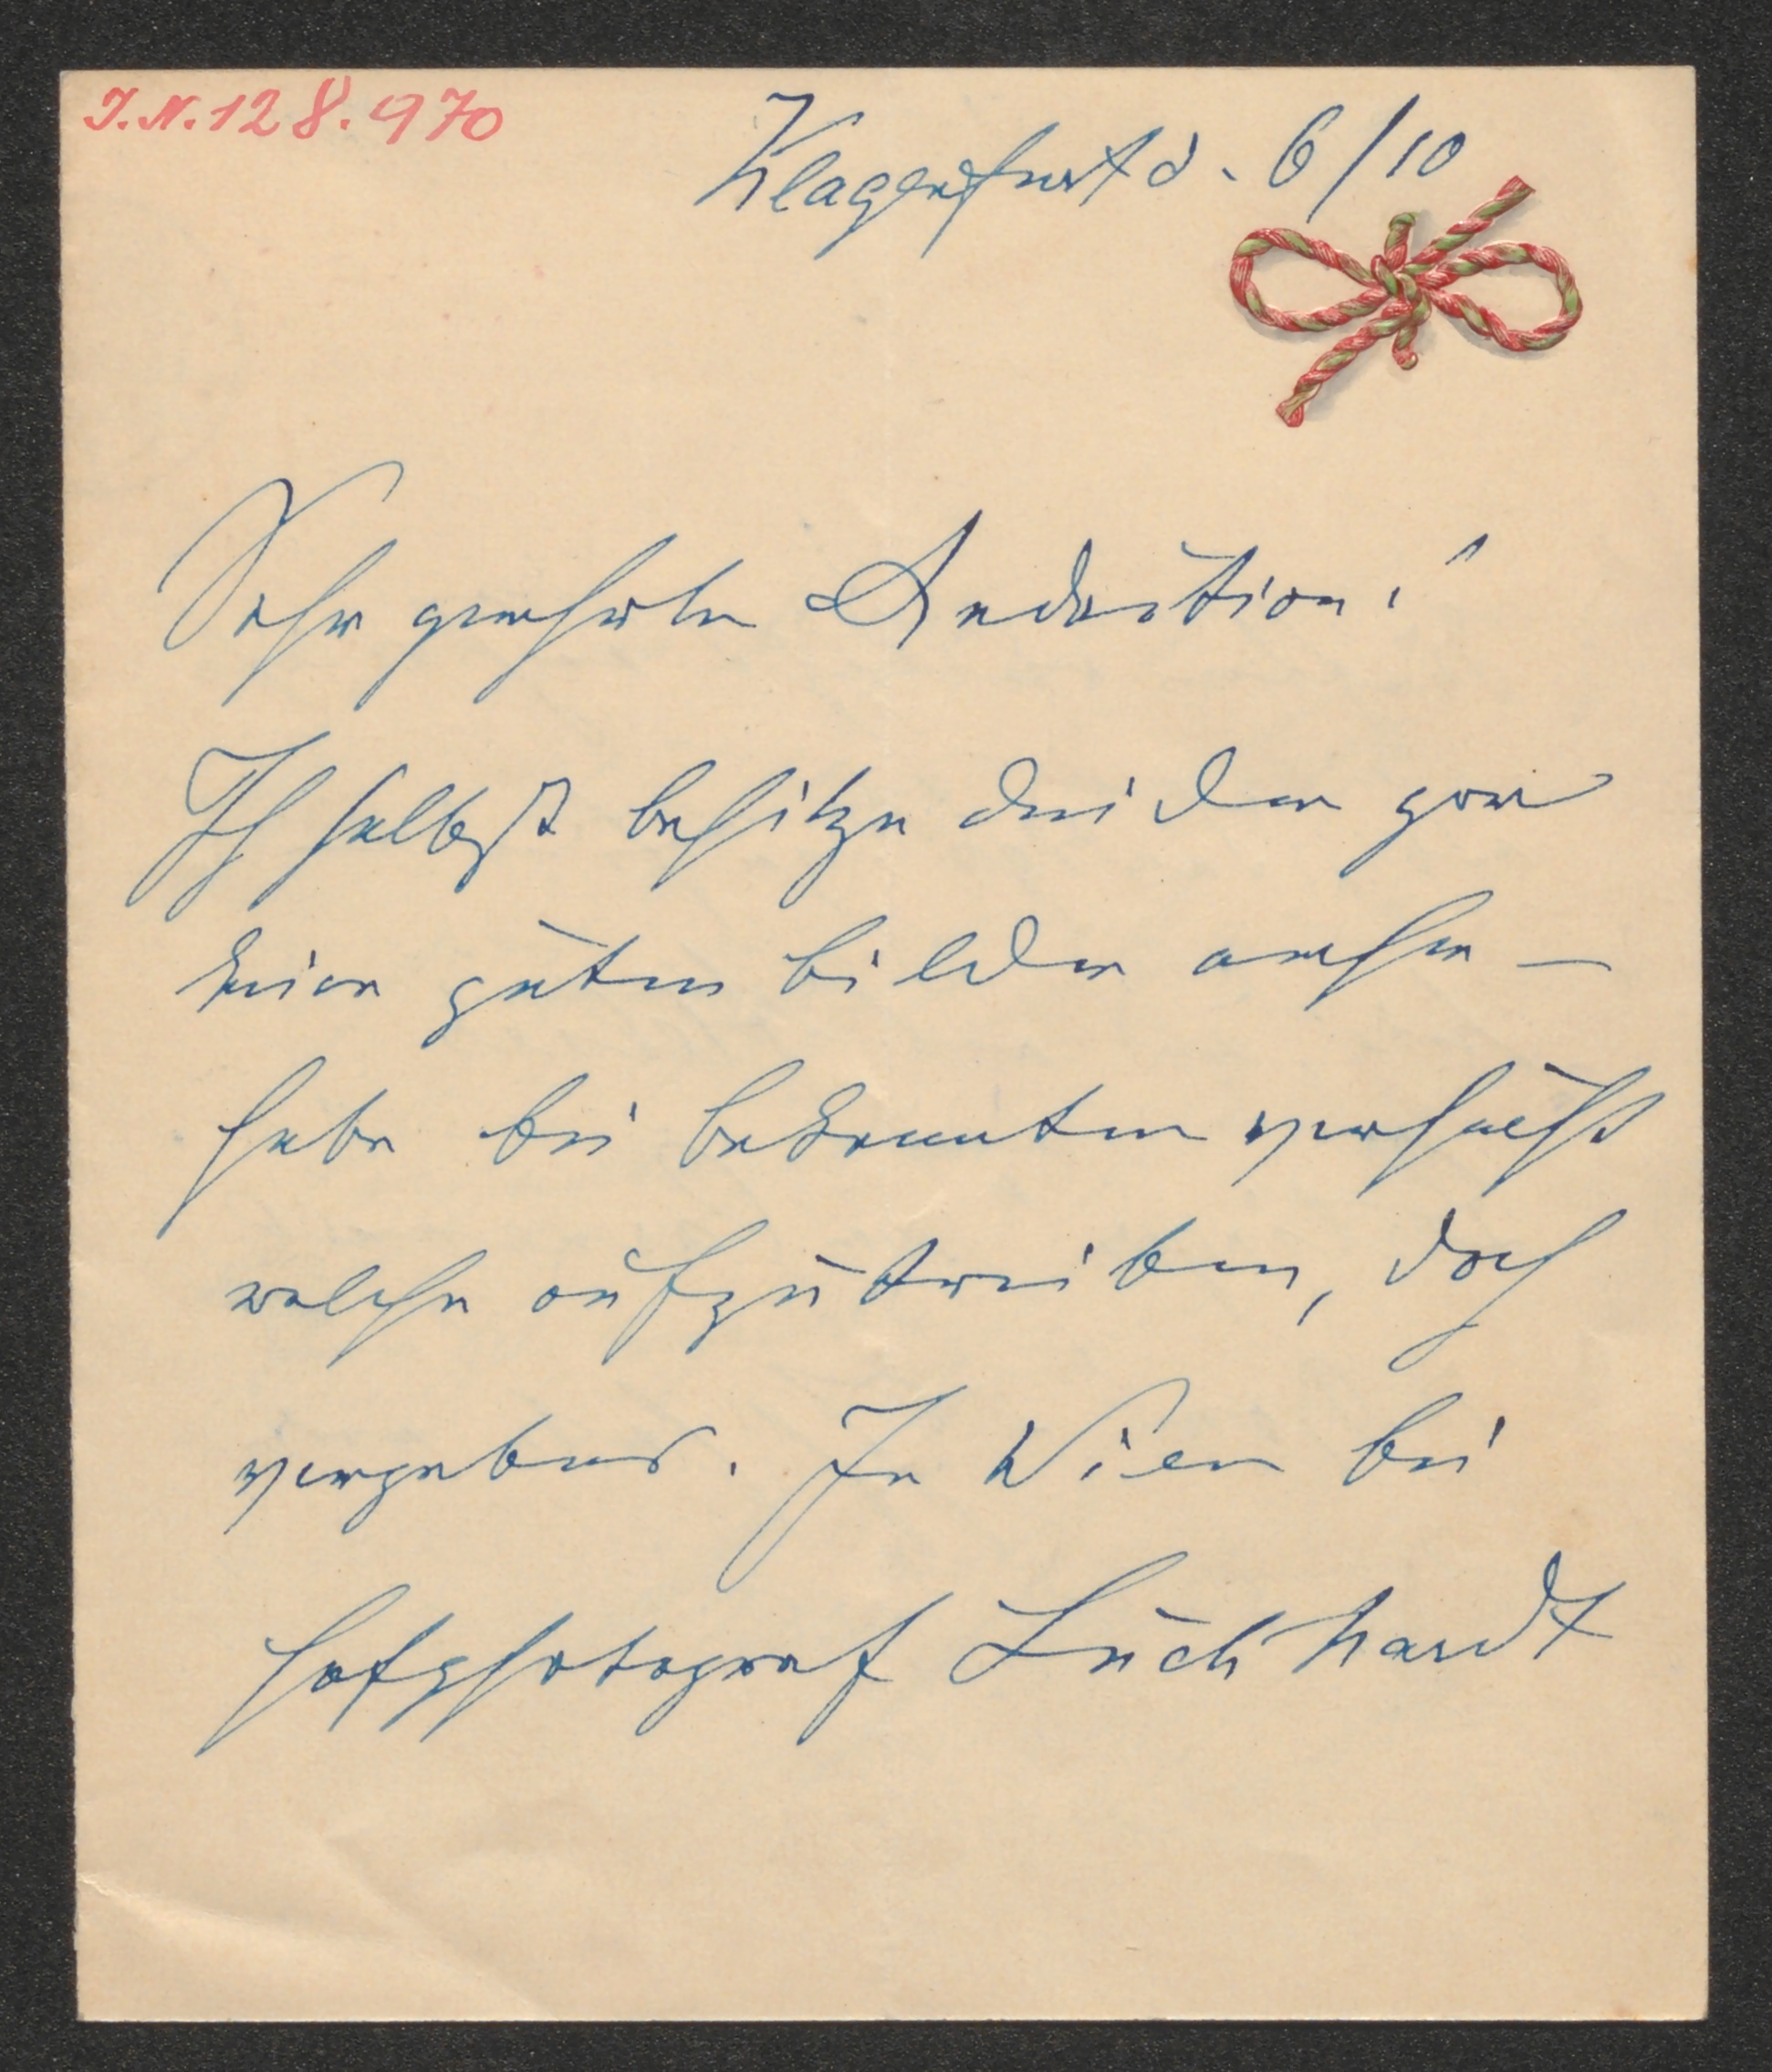 I.N. 128.970
Klagenfurt d. 6/10
Sehr geehrte Redaction!
Ich selbst besitze leider gar
keine guten bilder mehr –
habe bei bekannten versucht
welche aufzutreiben, doch
vergebens. In Wien bei
hofphotograf Luckhardt